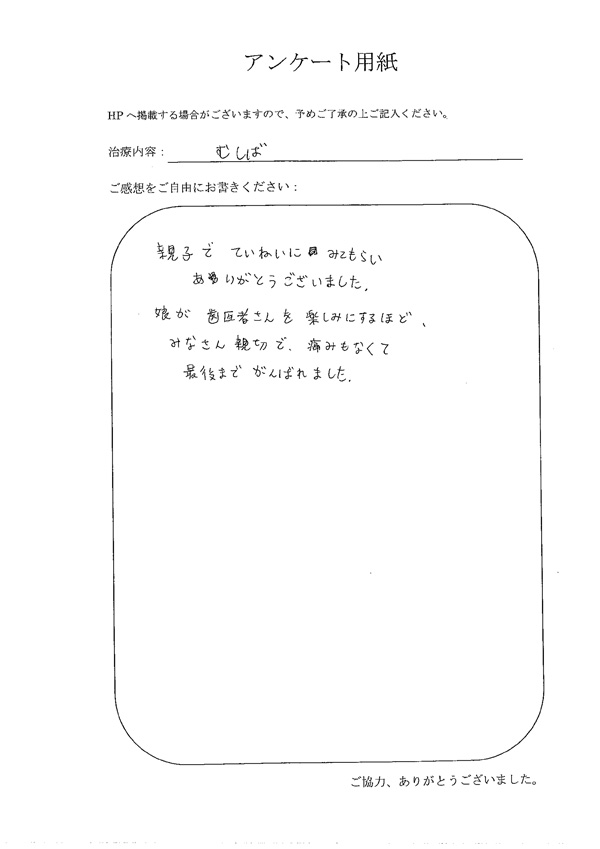 アンケート用紙
HPへ掲載する場合がございますので、予めご了承の上ご記入ください。
治療内容： むしば
ご感想をご自由にお書きください：
親子で ていねいに みてもらい
ありがとうございました。
娘が 歯医者さんを 楽しみにするほど、
みなさん 親切で、痛みもなくて
最後まで がんばれました。
ご協力、ありがとうございました。